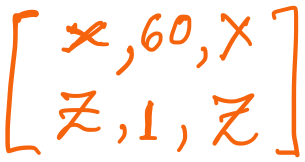 [x, 60, x
z, 1, z]